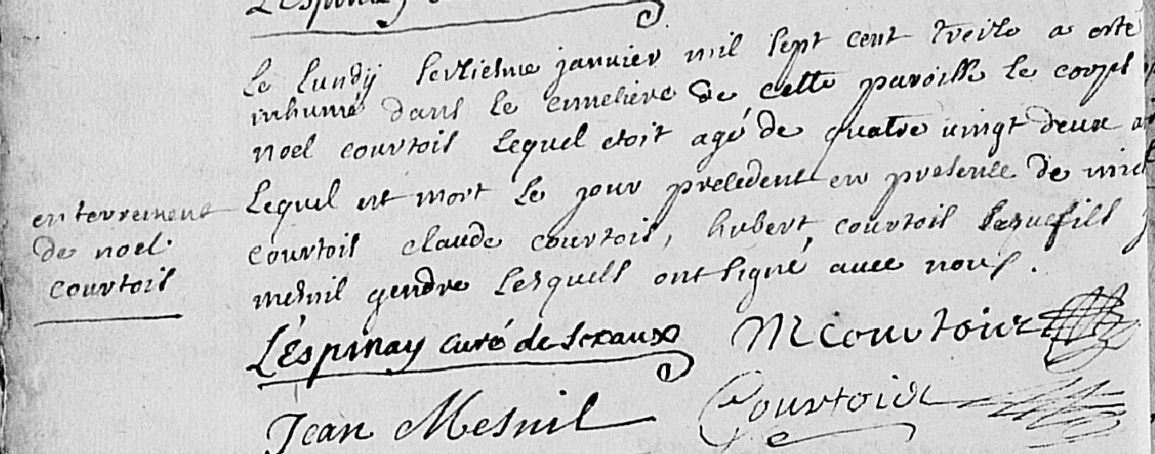 Le lundy seziesme janvier mil sept cent treize a esté
inhumé dans le cimetiere de cette paroisse le corps
noel courtois lequel etoit agé de quatre vingt deux
lequel est mort le jour precedent en presence de
enterrement
courtois claude courtois, hubert courtois fils
de noel
mesnil gendre lesquels ont signé avec nous.
courtois
L'éspinay curé de M courtois
Jean Mesnil Courtois